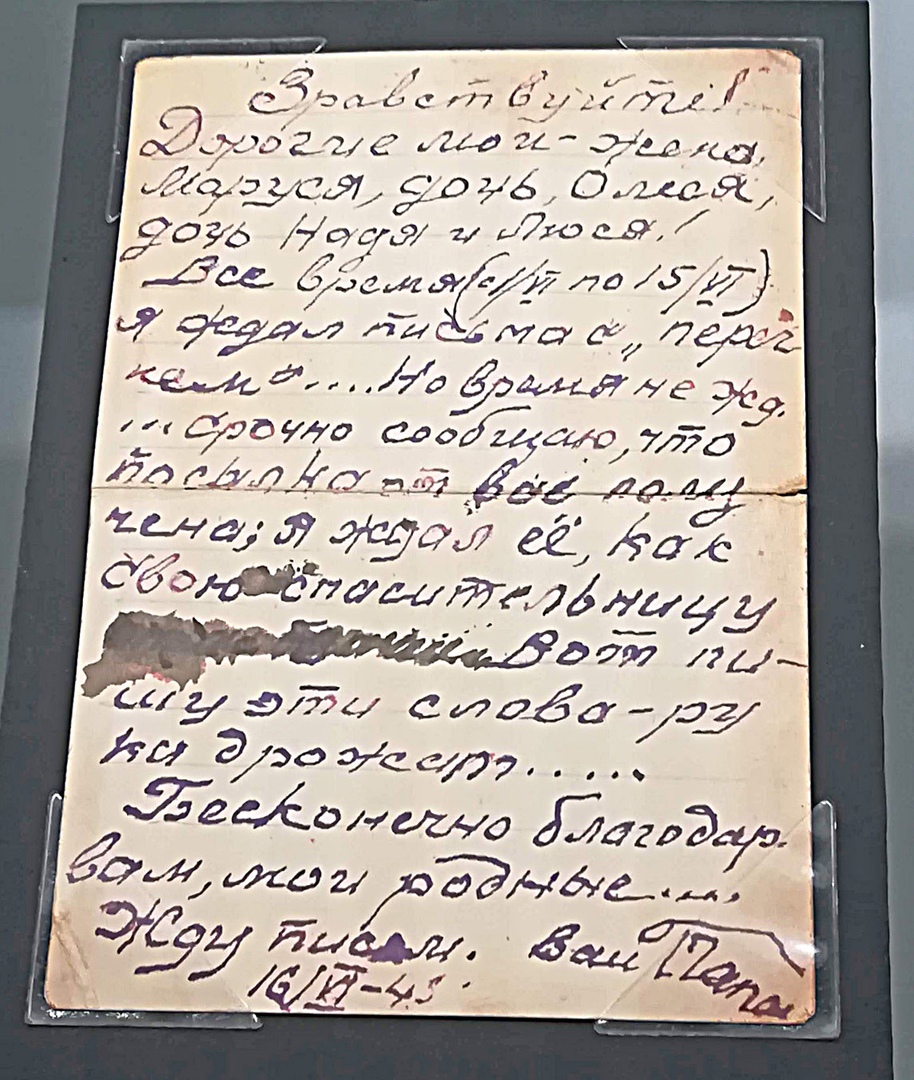 Зравствуйте!
Дорогие мои - жена,
Маруся, дочь, Олеся,
дочь Надя и Люся!
Все время (с 1/VI по 15/VI)
я ждал письма с „переч
нем“.... Но время не жд.
... срочно сообщаю, что
посылка от вас полу
чена; я ждал её, как
свою спасительницу
Вот пи-
шу эти слова - ру
ки дрожат.....
Бесконечно благодар.
вам, мои родные....
Жду писем. ваш Папа
16/VI-43